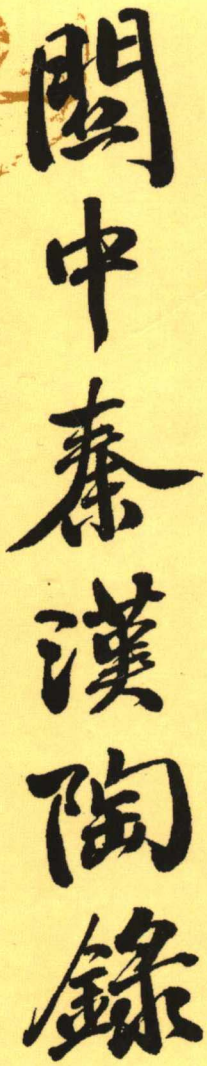 關中秦漢陶錄